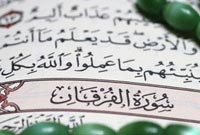 يُصِيبَهُمْ عَذَابٌ أَلِيمٌ
وَالْأَرْضِ قَدْ يَعْلَمُ مَا أَنْتُمْ
فَيُنَبِّئُهُمْ بِمَا عَمِلُوا وَاللَّهُ بِكُلِّ
سُورَةُ الْفُرْقَانِ